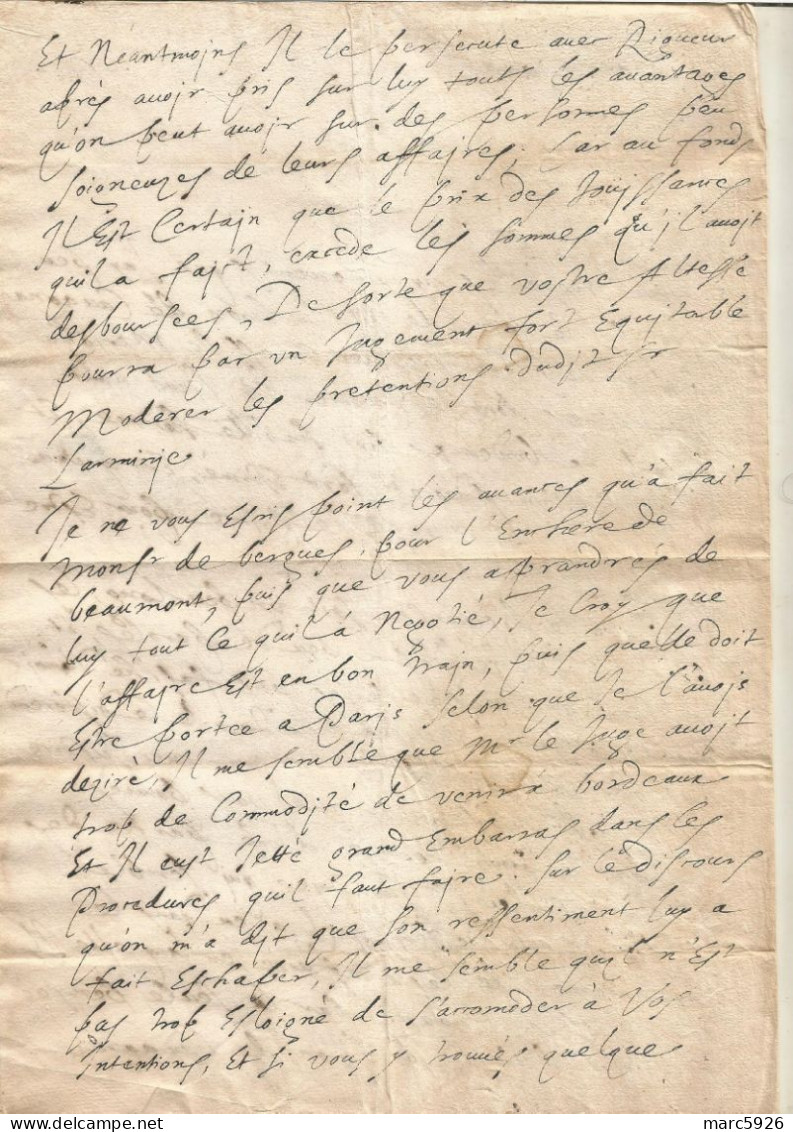 Et Néantmoins Il le persecute avec Rigueur
aprés avoir pris sur luy touts les avantages
qu'on peut avoir sur des personnes peu
soigneuzes de leurs affaires, Car au fonds
Il Est Certain que le prix des Jouissances
quil a fajct, excede les sommes qu'il avoit
desboursées, De sorte que vostre Altesse
pourra par un Jugement fort Equitable
Moderer les pretentions dudjt sr
Larminie
Je ne vous Escris point les avances qu'a fait
Monsr de bergues, pour l'Enchere de
beaumont, puis que vous apprandrés de
luy tout ce quil â Negotié, Je Croy que
l'affaire Est en bon train, puis quelle doit
Estre portee a Paris selon que Je l'avois
deziré, Il me semble que Mr le Juge avoit
trop de Commodité de venir â bordeaux
Et Il eust Jetté grand Embarras dans les
Procedures quil faut faire. Sur le discours
qu'on m'a djt que son ressentiment luy a
fait Eschaper, Il me semble quil n'Est
pas trop Esloigné de s'accomoder â Vos
Intentions, Et si vous y trouvés quelque
marc5926